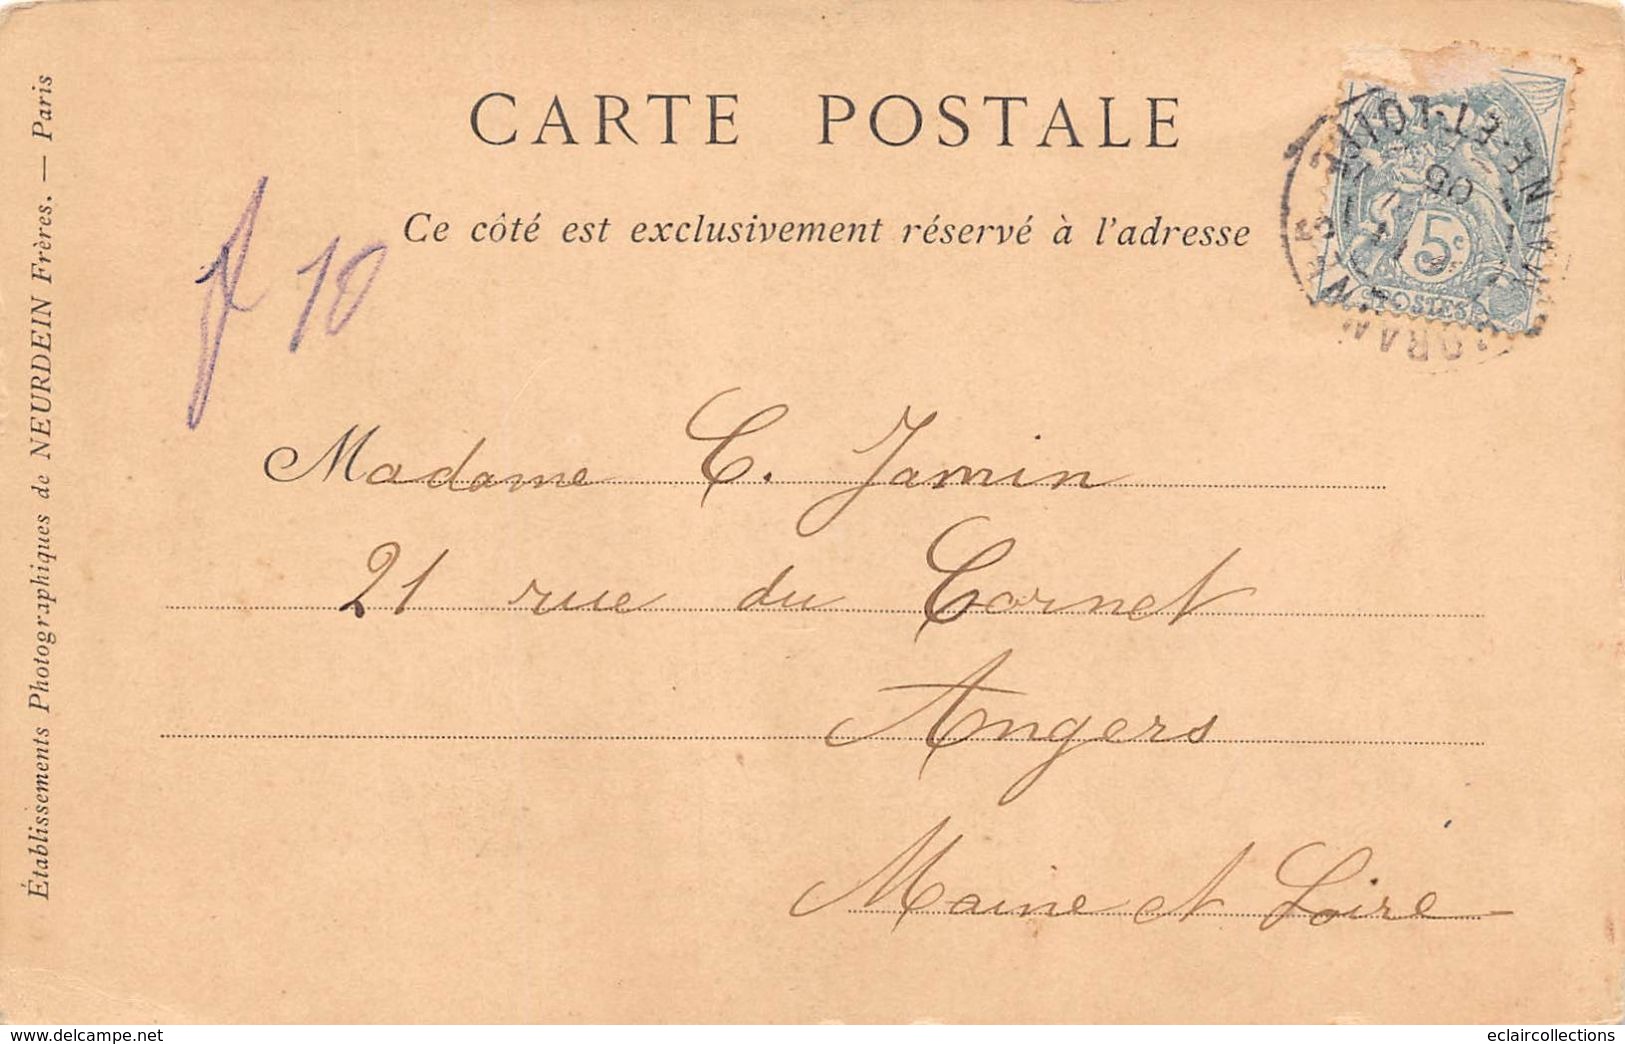 CARTE POSTALE
Ce côté est exclusivement réservé à l'adresse
Établissements Photographiques de NEURDEIN Frères. — Paris
10
5c
POSTES
05
Madame C. Jamin
21 rue du Cornet
Angers
Maine et Loire
www.delcampe.net
eclaircollections